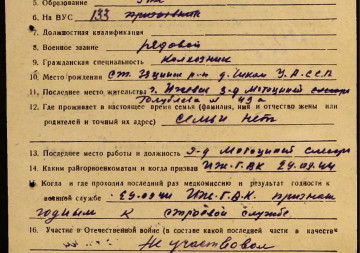 5. Образование
6. На ВУС 133 призывник
7. Должностная квалификация
8. Военное звание рядовой
9. Гражданская специальность колхозник
10. Место рождения ст. р-н д. У.А.С.С.Р
11. Последнее место жительства г. Ижевск з-д Мотоциклей слесарь
Голублева 49а
12. Где проживает в настоящее время семья (фамилия, имя и отчество жены или
родителей и точный их адрес) семьи нет
13. Последнее место работы и должность з-д Мотоциклей слесарь
14. Каким райгорвоенкоматом и когда призван ИЖ-Г.ВК 24.04.44
Когда и где проходил последний раз медкомиссию и результат годности к
военной службе ИЖ-Г.В.К. признан
годным к строевой службе
16. Участие в Отечественной войне (в составе какой последней части в качестве
Не участвовал